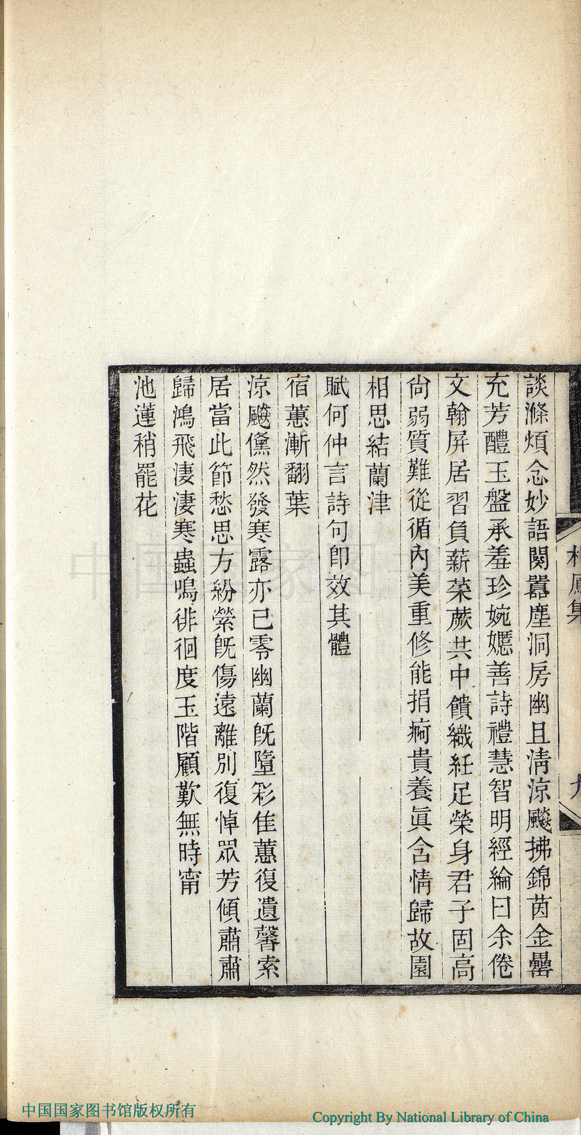 談滌煩念妙語闋囂塵洞房幽且清涼飈拂錦茵金罍
充芳醴玉盤承羞珍婉嫕善詩禮慧智明經綸曰余倦
文翰屏居習負薪菜蕨共中饋織紝足榮身君子固高
尙弱質難從循內美重修能捐痾貴養眞含情歸故園
相思結蘭津
賦何仲言詩句卽效其體
宿蕙漸翻葉
涼飈儵然發寒露亦已零幽蘭旣墮彩佳蕙復遺馨索
居當此節愁思方紛縈旣傷遠離別復悼眾芳傾肅肅
歸鴻飛淒淒寒蟲鳴徘徊度玉階顧歎無時甯
池蓮稍罷花
集
九
中国国家图书馆版权所有
Copyright By National Library of China